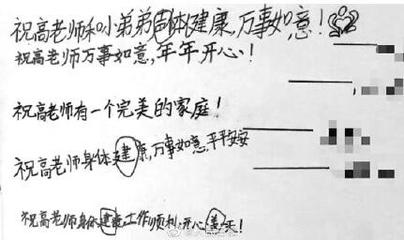 祝高老师和小弟弟身体健康,万事如意!
祝高老师万事如意,年年开心!
祝高老师有一个完美的家庭!
祝高老师身体健康,万事如意,平平安安
祝高老师身体健康,工作顺利,开心美天!